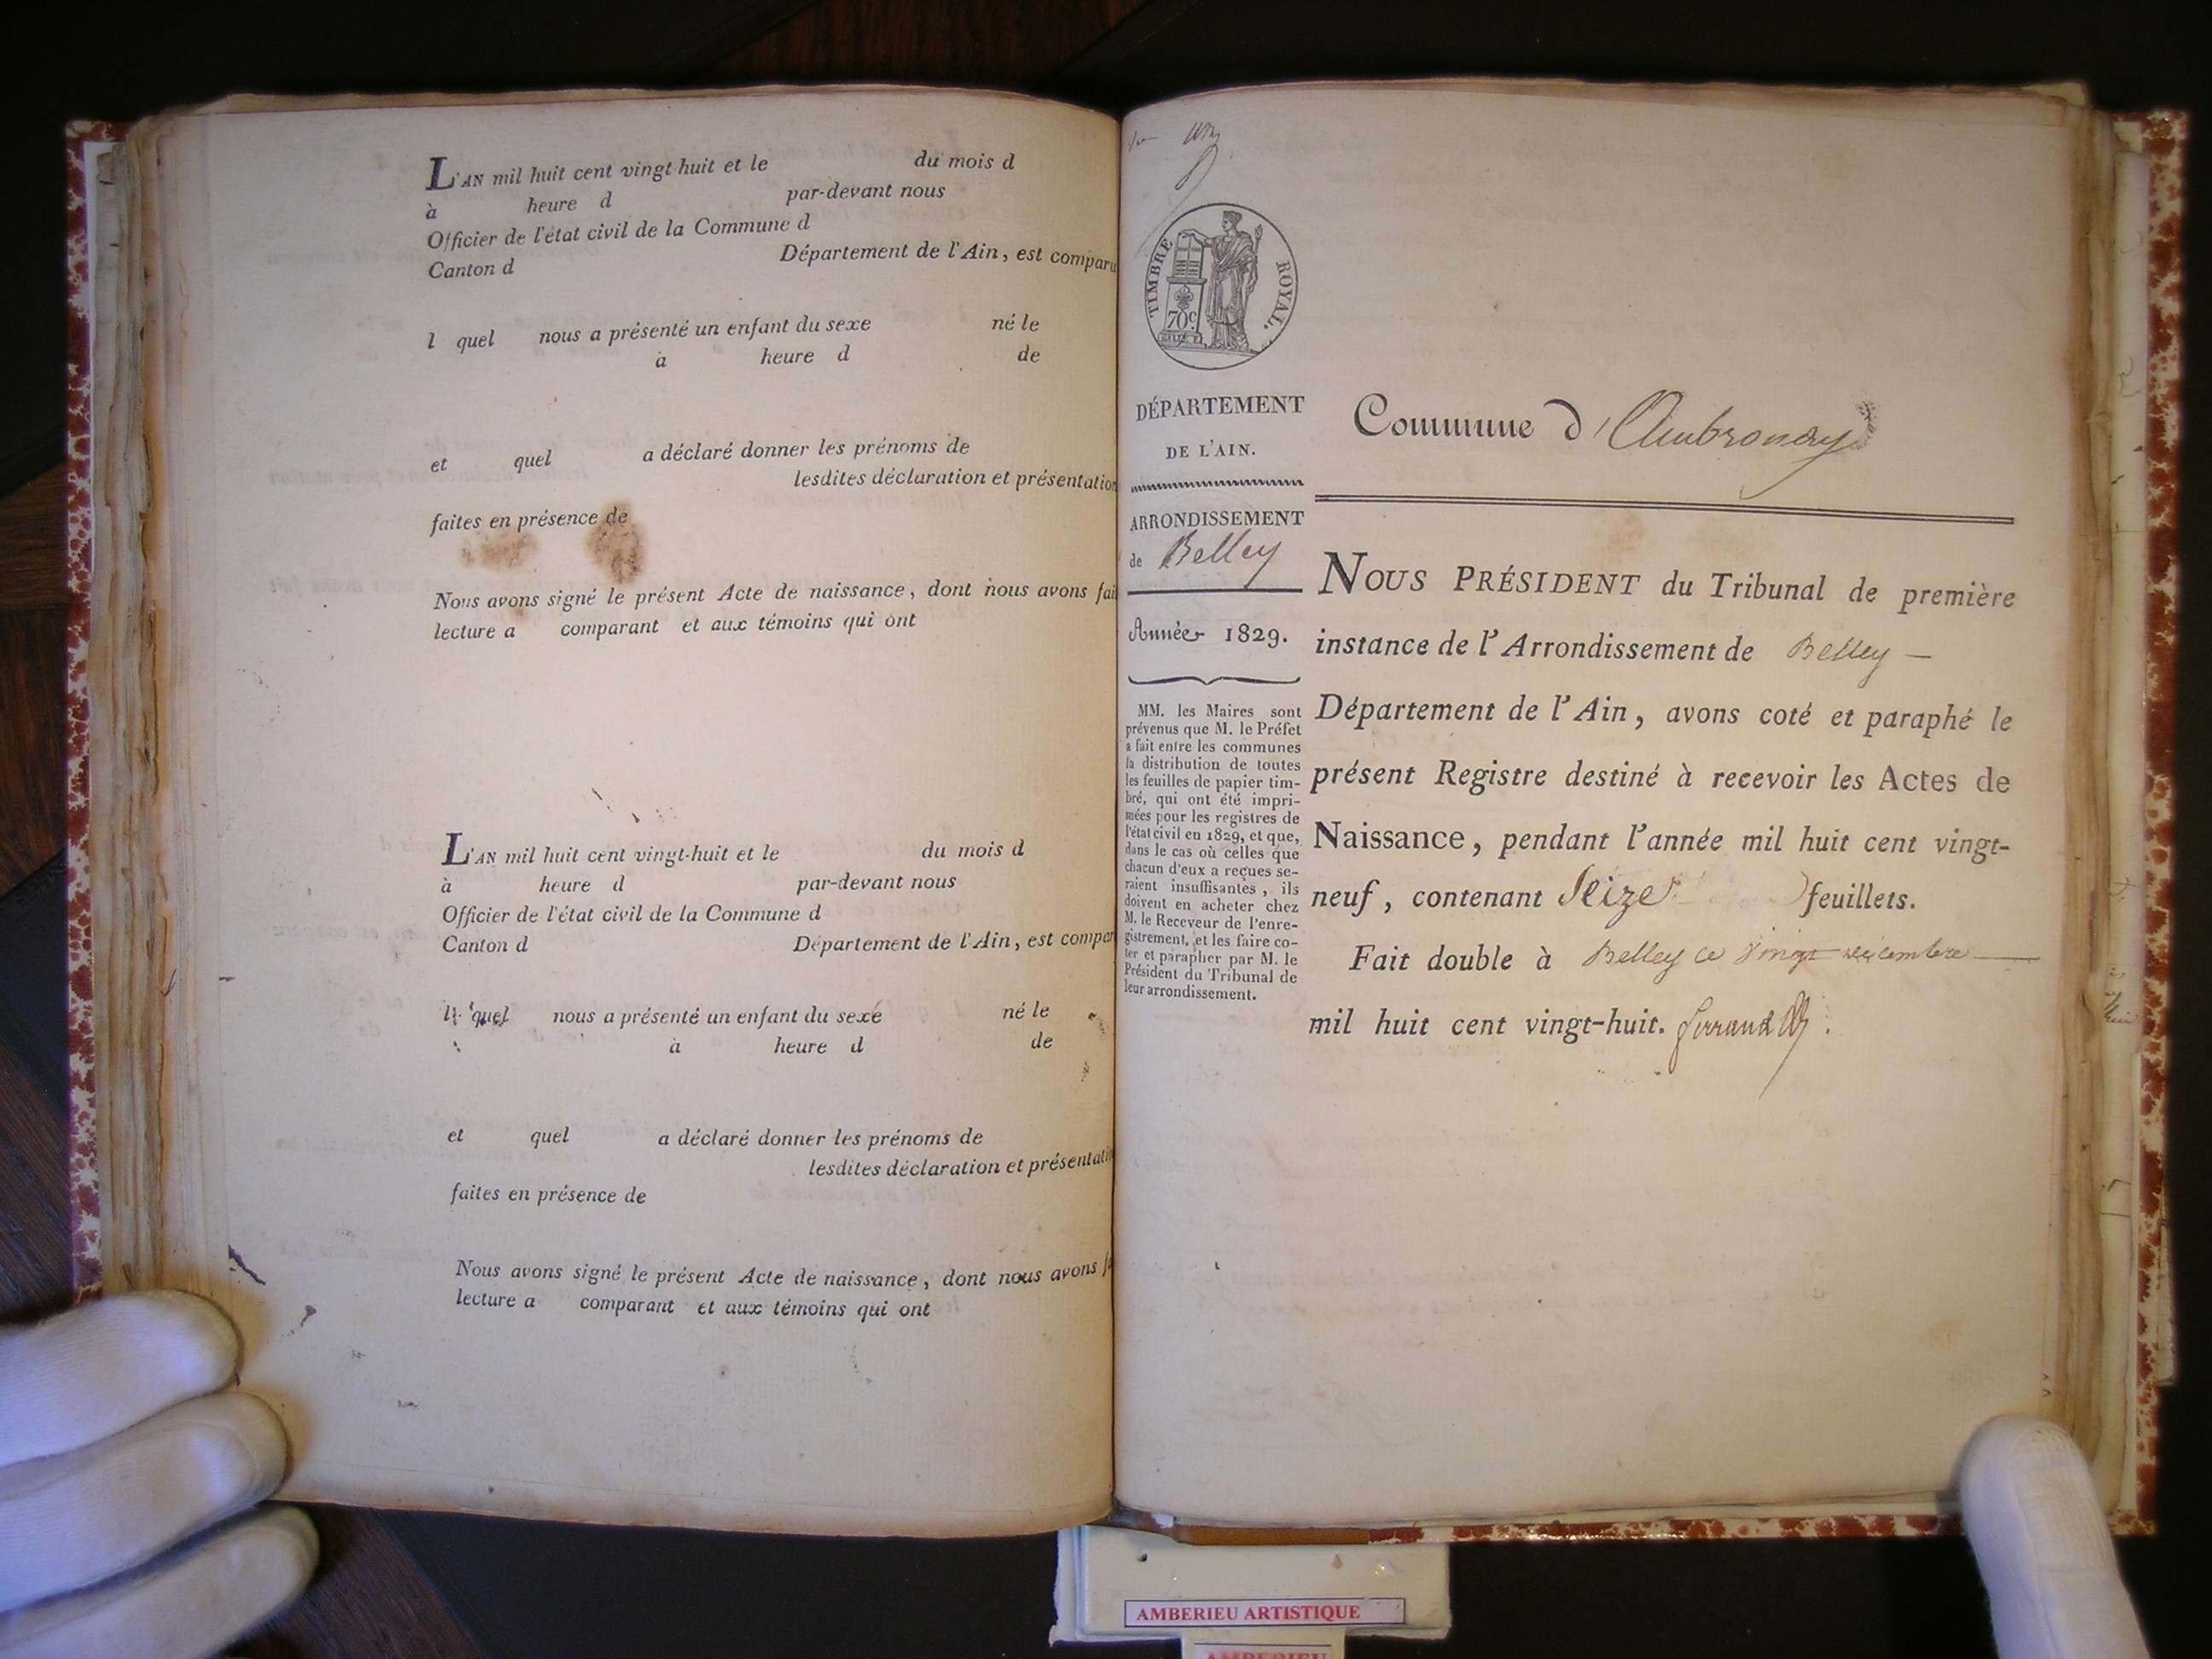 L'AN mil huit cent vingt-huit et le du mois d
à heure d par-devant nous
Officier de l'état civil de la Commune d
Canton d Département de l'Ain, est comparu
l quel nous a présenté un enfant du sexe né le
à heure d de
et quel a déclaré donner les prénoms de
lesdites déclaration et présentation
faites en présence de
Nous avons signé le présent Acte de naissance, dont nous avons fai
lecture a comparant et aux témoins qui ont
L'AN mil huit cent vingt-huit et le du mois d
à heure d par-devant nous
Officier de l'état civil de la Commune d
Canton d Département de l'Ain, est compar
l quel nous a présenté un enfant du sexe né le
à heure d de
et quel a déclaré donner les prénoms de
lesdites déclaration et présentati
faites en présence de
Nous avons signé le présent Acte de naissance, dont nous avons f
lecture a comparant et aux témoins qui ont
TIMBRE ROYAL.
70c
DÉPARTEMENT
DE L'AIN.
ARRONDISSEMENT
de Belley
Année 1829.
MM. les Maires sont
prévenus que M. le Préfet
a fait entre les communes
la distribution de toutes
les feuilles de papier tim-
bré, qui ont été impri-
mées pour les registres de
l'état civil en 1829, et que,
dans le cas où celles que
chacun d'eux a reçues se-
raient insuffisantes, ils
doivent en acheter chez
M. le Receveur de l'enre-
gistrement, et les faire co-
ter et parapher par M. le
Président du Tribunal de
leur arrondissement.
Commune d'Ambronay
NOUS PRÉSIDENT du Tribunal de première
instance de l'Arrondissement de Belley —
Département de l'Ain, avons coté et paraphé le
présent Registre destiné à recevoir les Actes de
Naissance, pendant l'année mil huit cent vingt-
neuf, contenant Seize feuillets.
Fait double à Belley ce vingt décembre —
mil huit cent vingt-huit. Ferrand
AMBERIEU ARTISTIQUE
AMBERIEU